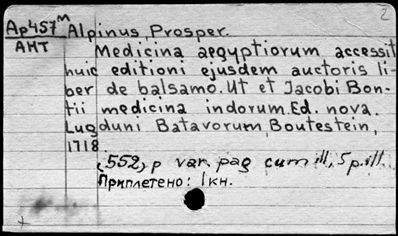 2
Ap457м Alpinus, Prosper.
АНТ Medicina aegyptiorum accessit
huic editioni ejusdem auctoris li-
ber de balsamo. Ut et Jacobi Bon-
tii medicina indorum. Ed. nova.
Lugduni Batavorum, Boutestein,
1718.
,552, p var. pag cum ill., 5 p. ill.
Приплетено: 1 кн.